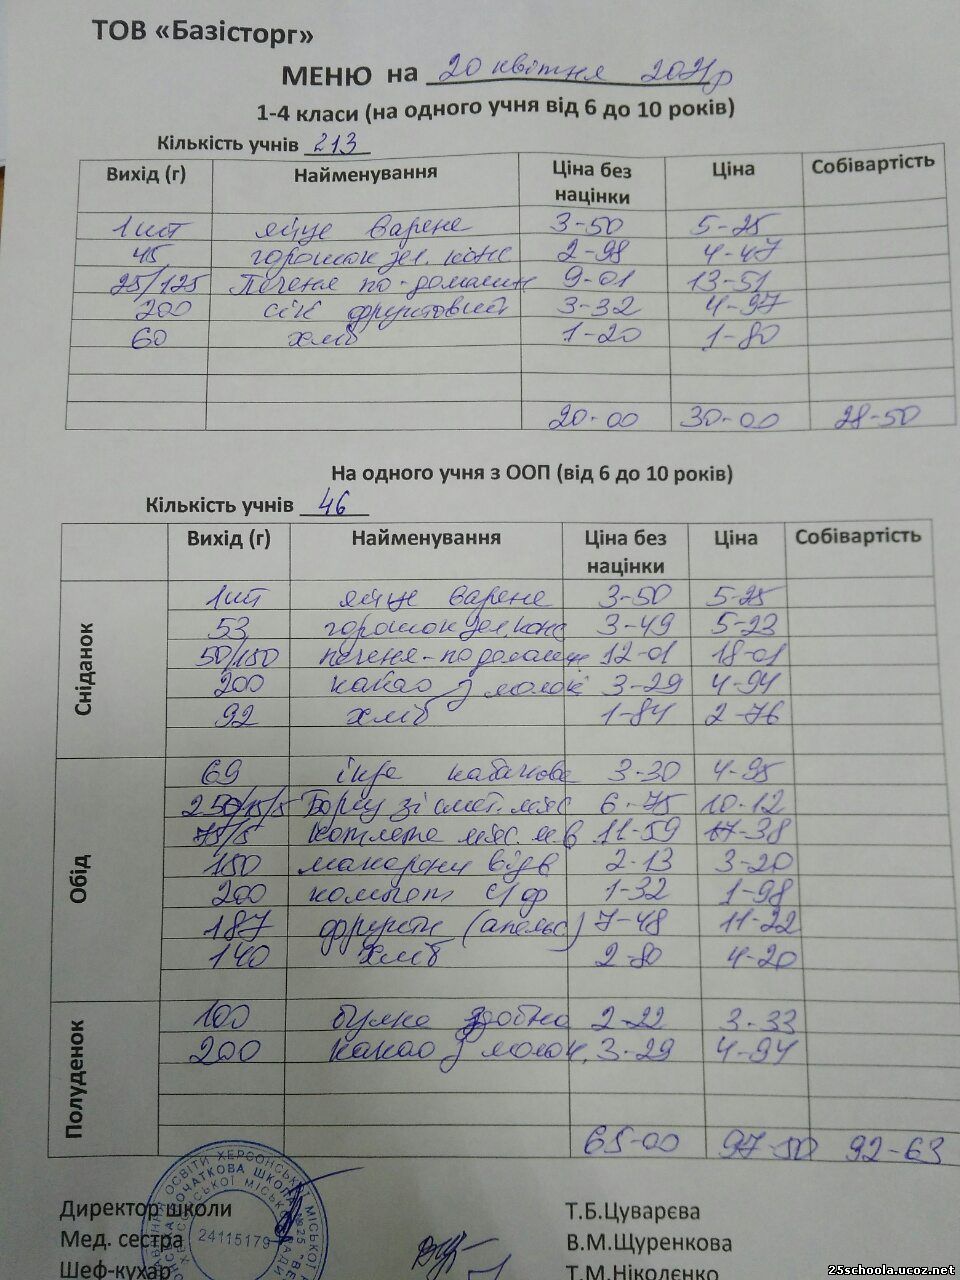 ТОВ «Базісторг»
МЕНЮ на 20 квітня 2021р
1-4 класи (на одного учня від 6 до 10 років)
Кількість учнів 213
Вихід (г) Найменування Ціна без націнки Ціна Собівартість
1шт яйце варене 3-50 5-25
45 горошок зел. конс 2-98 4-47
25/125 Печеня по-домашн 9-01 13-51
200 сік фруктовий 3-32 4-97
60 хліб 1-20 1-80
20-00 30-00 28-50
На одного учня з ООП (від 6 до 10 років)
Кількість учнів 46
Вихід (г) Найменування Ціна без націнки Ціна Собівартість
Сніданок
1шт яйце варене 3-50 5-25
53 горошок зел конс 3-49 5-23
50/150 печеня-по домашн 12-01 18-01
200 какао з молок 3-29 4-94
92 хліб 1-84 2-76
Обід
69 ікра кабачкова 3-30 4-95
250/15/5 Борщ зі смет. мяс 6-75 10-12
75/5 котлета мяс. м.в 11-59 17-38
150 макарони відв 2-13 3-20
200 компот с/ф 1-32 1-98
187 фрукти (апельс) 7-48 11-22
140 хліб 2-80 4-20
Полуденок
100 булка здобна 2-22 3-33
200 какао з молок. 3-29 4-94
65-00 97-50 92-63
Директор школи Т.Б.Цуварєва
Мед. сестра В.М.Щуренкова
Шеф-кухар Т.М.Ніколєнко
24115179
25schoola.ucoz.net